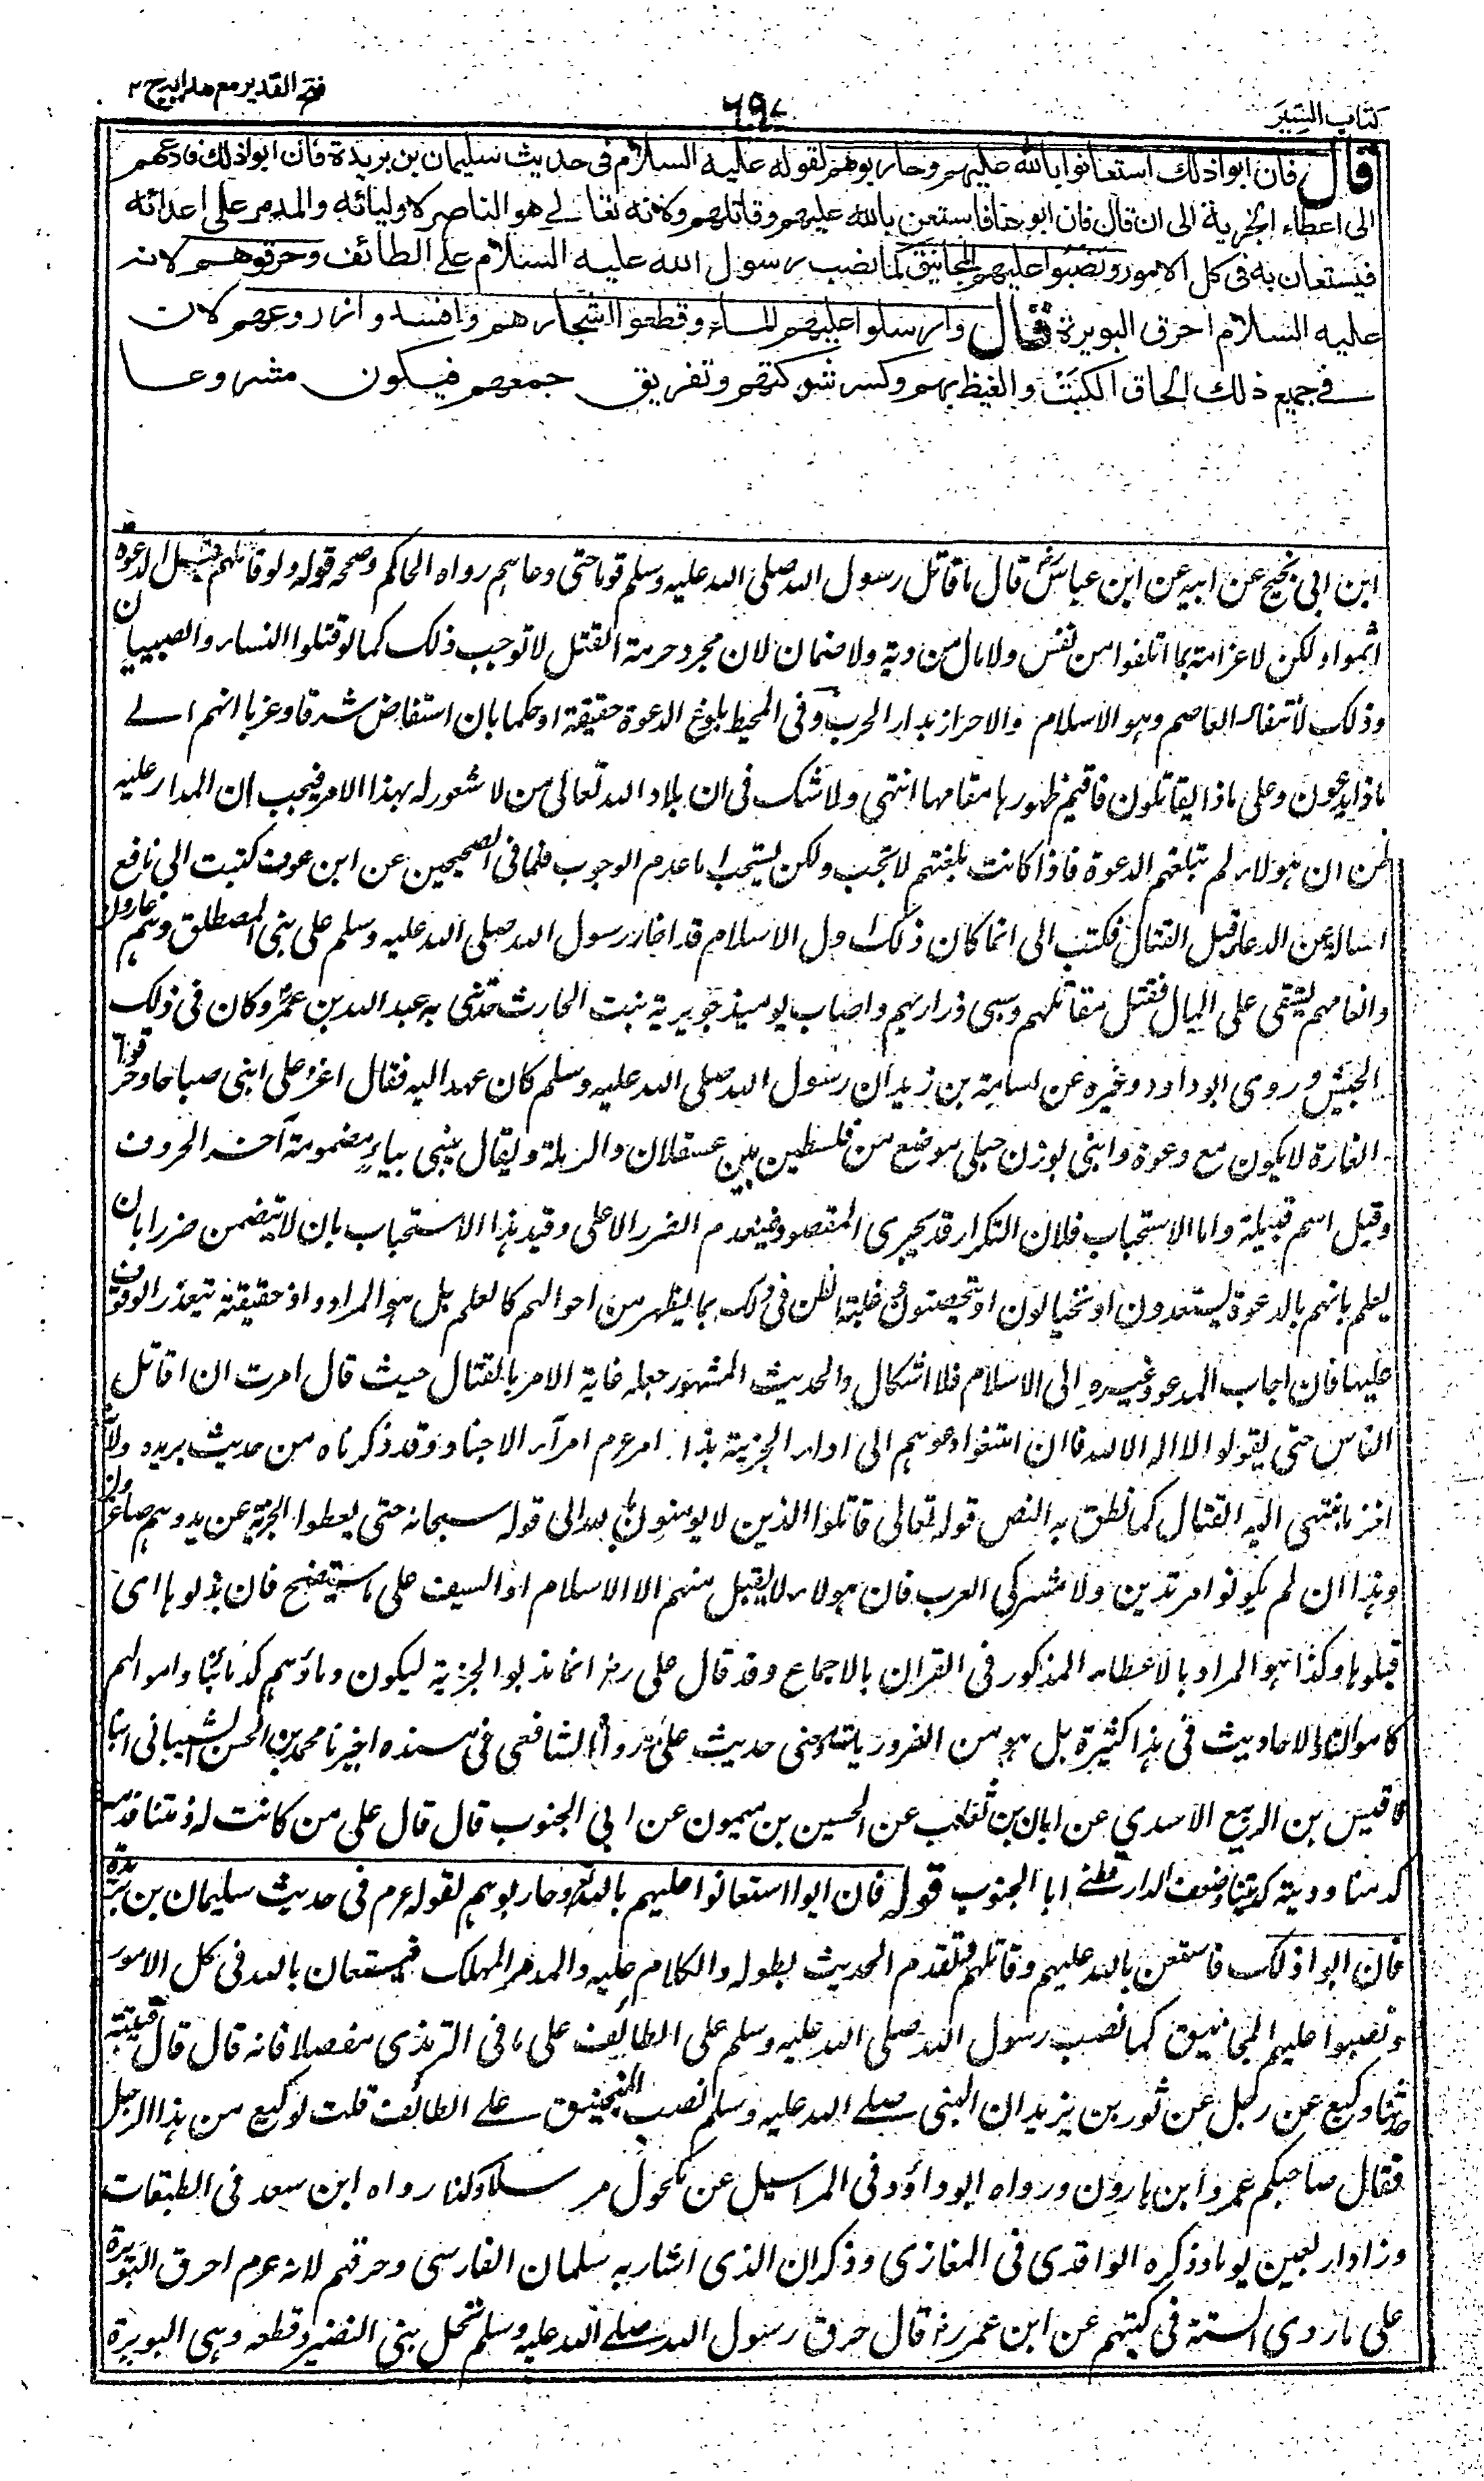 كتاب السير
٦٩٤
فتح القدير مع هدايه ج ٢
قال فان ابوا ذلك استعانوا بالله عليهم وحاربوهم لقوله عليه السلام في حديث سليمان بن بريدة فان ابوا ذلك فادعهم
الى اعطاء الجزية الى ان قال فان ابوها فاستعن بالله عليهم وقاتلهم ولانه تعالى هو الناصر لاوليائه والمدمر على اعدائه
فيستعان به في كل الامور ونصبوا عليهم المجانيق كما نصب رسول الله عليه السلام على الطائف وحرقوهم لانه
عليه السلام احرق البويرة قال وارسلوا عليهم الماء وقطعوا اشجارهم وافسدوا زروعهم لان
في جميع ذلك الحاق الكبت والغيظ بهم وكسر شوكتهم وتفريق جمعهم فيكون مشروعا
ابن ابى نجيح عن ابيه عن ابن عباس قال ما قاتل رسول الله صلى الله عليه وسلم قوما حتى دعاهم رواه الحاكم وصححه قوله ولو قاتلهم قبل الدعوة
اثموا ولكن لا غرامة بما اتلفوا من نفس ولا مال من دية ولا ضمان لان مجرد حرمة القتل لا توجب ذلك كما لو قتلوا النساء والصبيان
وذلك لانتفاء العاصم وهو الاسلام والاحراز بدار الحرب وفى المحيط بلوغ الدعوة حقيقة او حكما بان استفاض شرقا وغربا انهم الى
ماذا يدعون وعلى ماذا يقاتلون فاقيم ظهورها مقامها انتهى ولا شك فى ان بلاد الله تعالى من لا شعور له بهذا الامر فيجب ان المدار عليه
ظن ان هولاء لم تبلغهم الدعوة فاذا كانت بلغتهم لا تجب ولكن يستحب اما عدم الوجوب فلما فى الصحيحين عن ابن عون كتبت الى نافع
اساله عن الدعاء قبل القتال فكتب الى انما كان ذلك اول الاسلام قد اغار رسول الله صلى الله عليه وسلم على بنى المصطلق وهم غارون
وانعامهم تسقى على الماء فقتل مقاتلهم وسبى ذراريهم واصاب يومئذ جويرية بنت الحارث حدثنى به عبد الله بن عمر وكان فى ذلك
الجيش وروى ابو داود وغيره عن اسامة بن زيد ان رسول الله صلى الله عليه وسلم كان عهد اليه فقال اغر على ابنى صباحا وحرق
الغارة لا يكون مع دعوة وابنى بوزن حبلى موضع من فلسطين بين عسقلان والرملة ويقال يبنى بياء مضمومة آخر الحروف
وقيل اسم قبيلة واما الاستحباب فلان التكرار قد يجدى المقصود فينعدم الضرر الاعلى وقيد هذا الاستحباب بان لا يتضمن ضررا بان
يعلم بانهم بالدعوة يستعدون او يحتالون او يتحصنون وغلبة الظن فى ذلك بما يظهر من احوالهم كالعلم بل هو المراد واذ حقيقته يتعذر الوقوف
عليها فان اجاب المدعو وغيره الى الاسلام فلا اشكال والحديث المشهور جعله غاية الامر بالقتال حيث قال امرت ان اقاتل
الناس حتى يقولوا لا اله الا الله فان امتنعوا دعوهم الى اداء الجزية بذا امر عم امراء الاجناد وقد ذكرناه من حديث بريده ولانه
اخر ما ينتهى اليه القتال كما نطق به النص قوله تعالى قاتلوا الذين لا يومنون بالله الى قوله سبحانه حتى يعطوا الجزية عن يد وهم صاغرون
وهذا ان لم يكونوا مرتدين ولا مشركى العرب فان هولاء لا يقبل منهم الا الاسلام او السيف على ما سيتضح فان بذلوها اى
قبلوها وكذا هو المراد بالاعطاء المذكور فى القران بالاجماع وقد قال على رض انما بذلوا الجزية ليكون دماؤهم كدمائنا واموالهم
كاموالنا والاحاديث فى هذا كثيرة بل هو من الضروريات ومعنى حديث على رواه الشافعى فى مسنده اخبرنا محمد بن الحسن الشيبانى انبا
نا قيس بن الربيع الاسدي عن ابان بن تغلب عن الحسين بن ميمون عن ابى الجنوب قال قال على من كانت له ذمتنا فدمه
كدمنا وديته كديتنا وضعف الدارقطنى ابا الجنوب قوله فان ابوا استعانوا عليهم بالله وحاربوهم لقوله عم فى حديث سليمان بن بريدة
فان ابوا ذلك فاستعن بالله عليهم وقاتلهم تقدم الحديث بطوله والكلام عليه والمدمر المهلك فيستعان بالله فى كل الامور
ونصبوا عليهم المجانيق كما نصب رسول الله صلى الله عليه وسلم على الطائف على ما فى الترمذى مفصلا فانه قال قال قتيبة
حدثنا وكيع عن رجل عن ثور بن يزيد ان النبى صلى الله عليه وسلم نصب المنجنيق على الطائف قلت لوكيع من هذا الرجل
فقال صاحبكم عمرو ابن هارون ورواه ابو داؤد فى المراسيل عن مكحول مرسلا وكذا رواه ابن سعد فى الطبقات
وزاد اربعين يوما وذكره الواقدى فى المغازى وذكر ان الذى اشار به سلمان الفارسى وحرقهم لانه عم احرق البويرة
على ما روى الستة فى كتبهم عن ابن عمر رض قال حرق رسول الله صلى الله عليه وسلم نخل بنى النضير وقطعه وهى البويرة